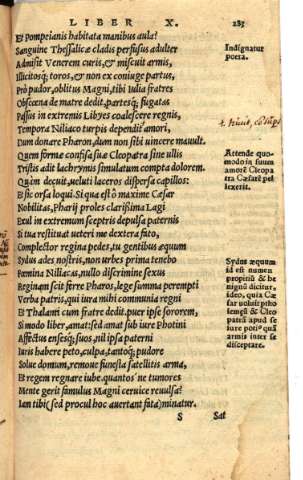 LIBER X. 285
Et Pompeianis habitata manibus aula?
Sanguine Thessalicæ cladis perfusus adulter
Admisit Venerem curis, & miscuit armis,
Illicitosq; toros, & non ex coniuge partus,
Pro pudor, oblitus Magni, tibi Iulia fratres
Obscœna de matre dedit, partesq; fugatas
Passus in extremis Libyes coalescere regnis,
Tempora Niliaco turpis dependit amori,
Dum donare Pharon, dum non sibi uincere mauult.
Quem formæ confisa suæ Cleopatra sine ullis
Tristis adit lachrymis simulatum compta dolorem.
Quàm decuit, ueluti laceros dispersa capillos:
Et sic orsa loqui. Si qua est ô maxime Cæsar
Nobilitas, Pharij proles clarissima Lagi
Exul in extremum sceptris depulsa paternis
Si tua restituat ueteri me dextera fato,
Complector regina pedes, tu gentibus æquum
Sydus ades nostris, non urbes prima tenebo
Fœmina Niliacas, nullo discrimine sexus
Reginam scit ferre Pharos, lege summa perempti
Verba patris, qui iura mihi communia regni
Et Thalami cum fratre dedit. puer ipse sororem,
Si modo liber, amat: sed amat sub iure Photini
Affectus ensesq; suos, nil ipsa paterni
Iuris habere peto, culpa, tantoq; pudore
Solue domum, remoue funesta satellitis arma,
Et regem regnare iube. quantos ne tumores
Mente gerit famulus Magni ceruice reuulsa?
Iam tibi (sed procul hoc auertant fata) minatur.
S Sat
Indignatur
poeta.
Attende quo-
modo in suum
amorē Cleopa
tra Cæsarē pel
lexerit.
Sydus æquum
id est numen
propitiū & be
nignū dicitur,
ideo, quia Cæ
sar uoluit ptho
lemęū & Cleo
patrā apud se
iure potiꝰ quā
armis inter se
disceptare.